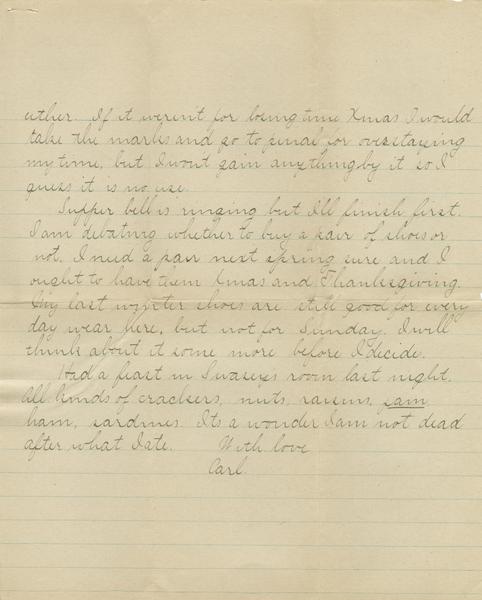 either. If it weren't for being time Xmas I would
take the marks and go to penal for overstaying
my time, but I wont gain anything by it so I
guess it is no use.
Supper bell is ringing but Ill finish first.
I am debating whether to buy a pair of shoes or
not. I need a pair next spring sure and I
ought to have them Xmas and Thanksgiving.
My last winter shoes are still good for every
day wear here, but not for Sunday. I will
think about it some more before I decide.
Had a feast in Swasey's room last night.
All kinds of crackers, nuts, raisins, jam
ham, sardines. Its a wonder I am not dead
after what I ate. With love
Carl.